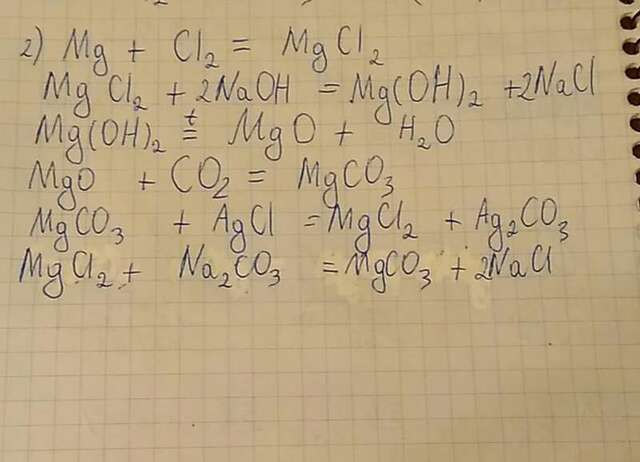 2) Mg + Cl₂ = MgCl₂
MgCl₂ + 2NaOH = Mg(OH)₂ + 2NaCl
Mg(OH)₂ =ᵗ MgO + H₂O
MgO + CO₂ = MgCO₃
MgCO₃ + AgCl = MgCl₂ + Ag₂CO₃
MgCl₂ + Na₂CO₃ = MgCO₃ + 2NaCl